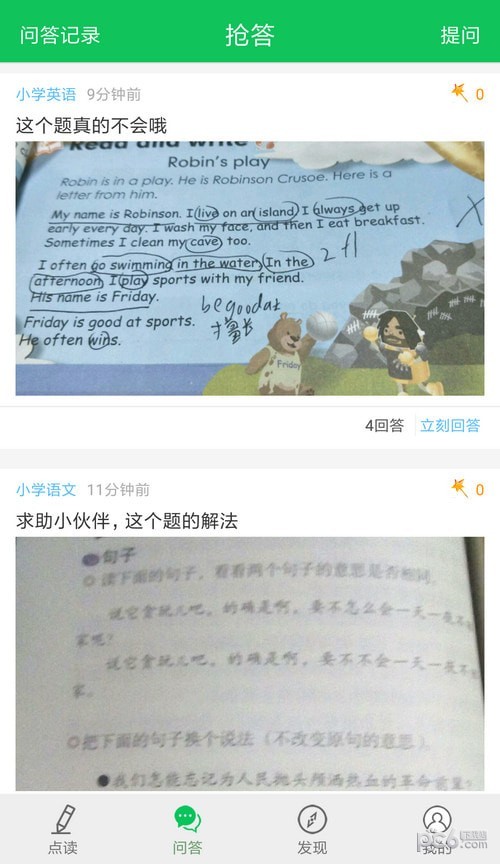 问答记录 抢答 提问
小学英语 9分钟前 0
这个题真的不会哦
Read and write
Robin's play
Robin is in a play. He is Robinson Crusoe. Here is a
letter from him.
My name is Robinson. I live on an island. I always get up
early every day. I wash my face, and then I eat breakfast.
Sometimes I clean my cave too.
I often go swimming in the water. In the
afternoon I play sports with my friend.
His name is Friday.
be good at
Friday is good at sports.
擅长
He often wins.
Friday
4回答 立刻回答
小学语文 11分钟前 0
求助小伙伴，这个题的解法
句子
读下面的句子，看看两个句子的意思是否相同。
说它贪玩儿吧，的确是啊，要不怎么会一天一夜不
家呢？
说它贪玩儿吧，的确是啊，要不不会一天一夜不
家。
把下面的句子换个说法（不改变原句的意思）。
我们怎能忘记为人民抛头颅洒热血的革命前辈？
点读 问答 发现 我的
pc6.com